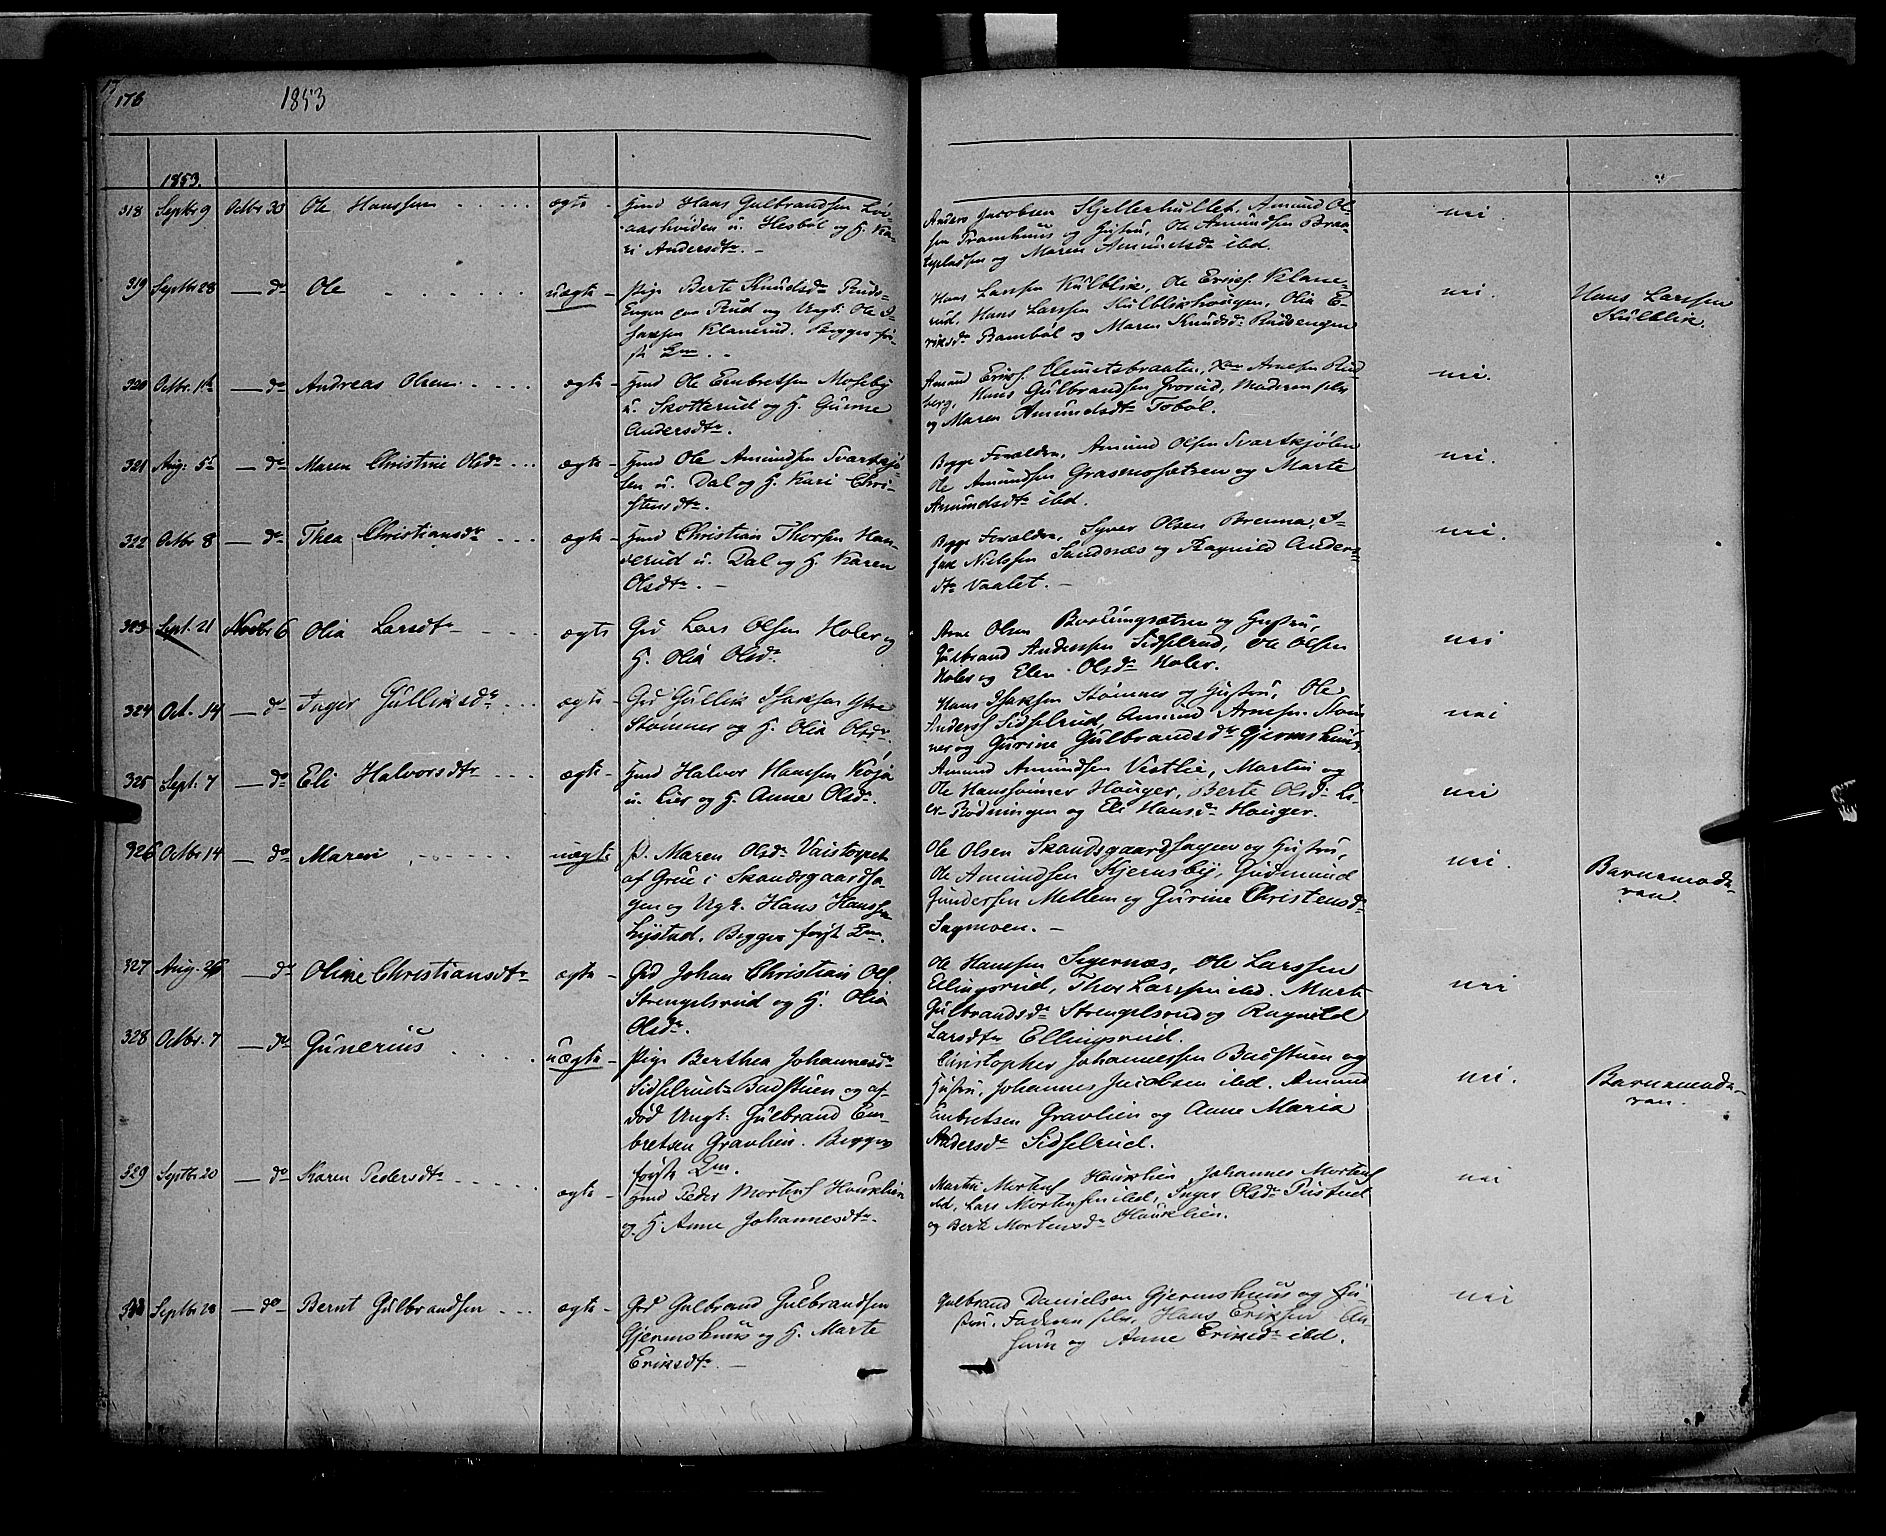 176
1853
1853.
318 Septbr 9 Octbr 30 Ole Hanssen ægte Hmd Hans Gulbrandsen
aashviden u. Hesbøl og H. Ka-
ri Andersdtr.
Anders Jacobsen Skjellerhullet, Amund Ol-
sen Framhuus og Hustru, Ole Amundsen Braa-
tepladsen og Maren Amundsdr ibd.
nei
319 Septbr 28 do Ole uægte Pige Berte Knudsdr Ruds-
Engen Rud og Ungk. Ole I-
saksen Klanerud. Begges før-
ste Lm.
Hans Larssen Kulblik, Ole Eriks. Klane-
rud, Hans Larssen Kulblikhougen, Olia E-
riksdr Bambøl og Maren Knudsdr Rudsengen
nei.
Hans Larssen
Kulblik.
320 Octbr 11te do Andreas Olsen ægte Hmd Ole Embretsen Moseby
u. Skotterud og H. Gunne
Andersdtr.
Amund Eriks. Arnesen Rud-
berg, Hans Gulbrandsen Grorud, Moderen selv
og Maren Amundsdtr Tobøl.
nei.
321 Aug. 5te do Maren Christine Olsdr ægte Hmd Ole Amundsen Svartkjø-
len u. Dal og H. Kari Chri-
stensdtr.
Begge Forældre, Amund Olsen Svartkjølen
Ole Amundsen Grasmosætren og Marte
Amundsdtr ibd.
nei.
322 Octbr 8 do Thea Christiansdr ægte Hmd Christian Thorsen Han-
serud u. Dal og H. Karen
Olsdtr.
Begge Forældre, Syver Olsen Brenna, I-
sak Nielssen Sandnæs og Ragnild Anders-
dtr Vaalet.
nei.
323 Sept. 21 Novbr 6 Olia Larsdtr ægte Grd Lars Olsen Holer og
H. Olia Olsdr.
Arne Olsen og Hustru,
Gulbrand Anderssen Sidselrud, Ole Olsen
Holer og Elen Olsdr Holer.
nei
324 Oct. 14 do Inger Gulliksdr ægte Grd Gullik Isaksen Ystre
Stømner og H. Olia Olsdr.
Hans Isaksen Stømner og Hustru, Ole
Anders. Sidselrud, Amund Arnesen Støm-
ner og Gurine Gulbrandsdr Gjermshuus.
nei
325 Sept. 7 do Eli Halvorsdtr ægte Hmd Halvor Hanssen Koja
u. Lier og H. Anne Olsdr.
Amund Amundsen Vestlie, Martin og
Ole Hanssønner Houger, Berte Olsdr Li-
er-Rødningen og Eli Hansdr Houger.
nei
326 Octbr 14 do Maren uægte P. Maren Olsdr Vaistorpet
af Grue i Skandsgaardsa-
gen og Ungk. Hans Hanssen
Lystad. Begges først Lm.
Ole Olsen Skandsgaardsagen og Hustru,
Ole Amundsen Kjernsby, Gudmund
Gundersen Mellem og Gurine Christensdr
Sagmoen.
nei.
Barnemode-
ren.
327 Aug. 26 do Oline Christiansdtr ægte Grd Johan Christian Ols.
Strengelsrud og H. Olia
Olsdr.
Ole Hanssen Segernæs, Ole Larssen
Ellingsrud, Thor Larssen ibd. Marte
Gulbrandsdr Strengelsrud og Ragnild
Larsdtr Ellingsrud.
nei
328 Octbr. 7 do Gunerius uægte Pige Berthea Johannesdr
Sidselruds-Badstuen og af-
død Ungk: Gulbrand Em-
bretsen Gravlien. Begges
første Lm.
Christopher Johannessen Badstuen og
Hustru, Johannes Jacobsen ibd. Amund
Embretsen Gravlien og Anne Maria
Andersdr Sidselrud.
nei.
Barnemode-
ren.
329 Septbr 20 do Karen Pedersdtr ægte Hmd Peder Mortens. Houklien
og H. Anne Johannesdtr.
Martin Mortens. Houklien, Johannes Mortens.
ibd, Lars Mortenssen ibd, Inger Olsdr Pustud
og Berte Mortensdr Houklien.
nei
330 Septbr 28 do Bernt Gulbrandsen ægte Grd Gulbrand Gulbrandsen
Gjermshuus og H. Marte
Eriksdtr.
Gulbrand Danielsen Gjermshuus og Hu-
stru. Faderen selv, Hans Eriksen
og Anne Eriksdr ibd.
nei